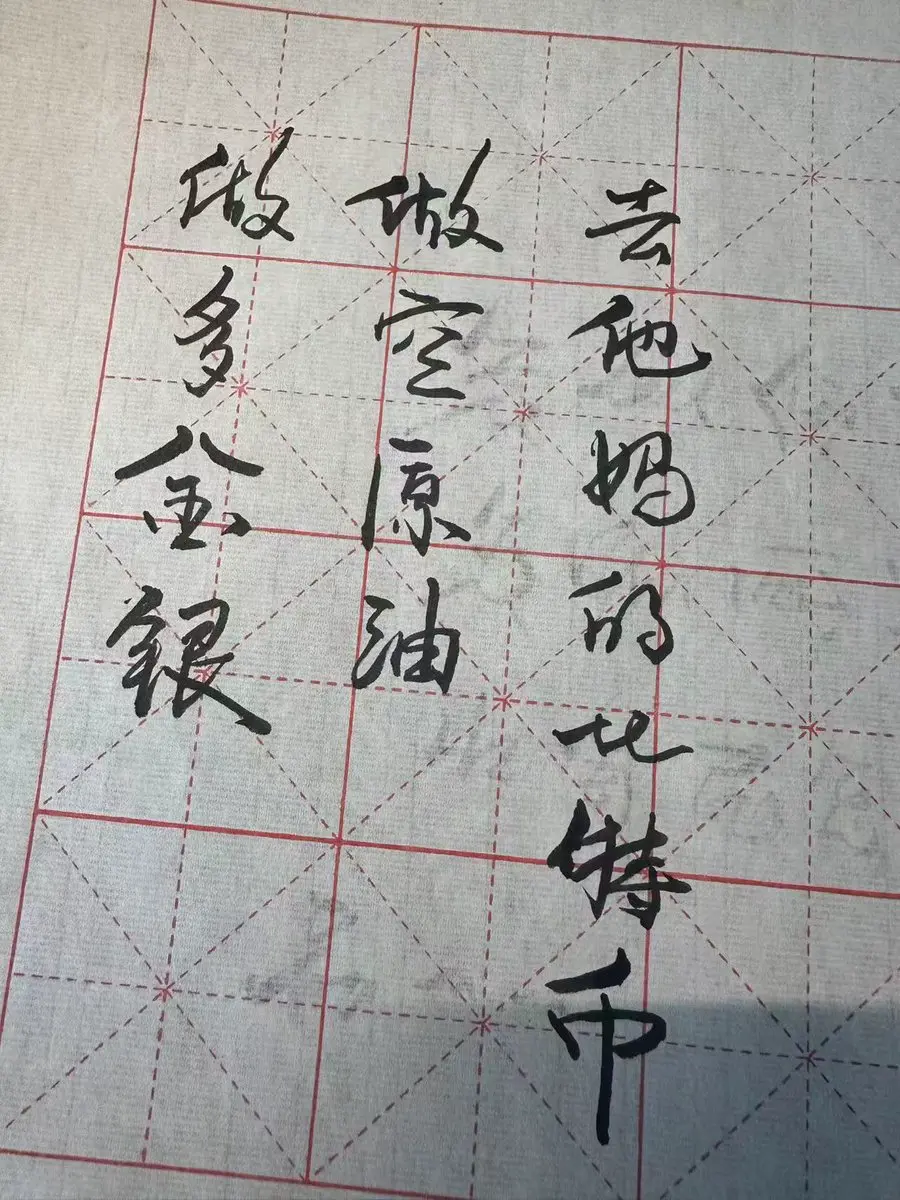 去他妈的比特币
做空原油
做多金银